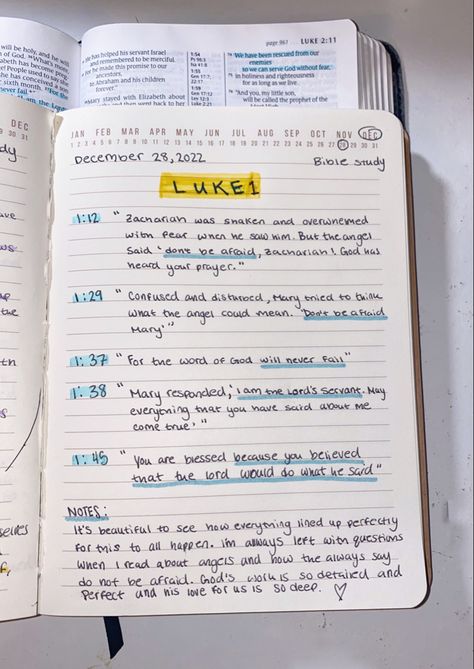 will be holy, and he will
page 967 LUKE 2:11
He has helped his servant Israel
and remembered to be merciful.
For he made this promise to our
ancestors,
to Abraham and his children
forever."
Mary stayed with Elizabeth about
1:54
1:55
We have been rescued from our
enemies
so we can serve God without fear,
in holiness and righteousness
for as long as we live.
"And you, my little son,
will be called the prophet of the
DEC
JAN FEB MAR APR MAY JUN JUL AUG SEP OCT NOV DEC
1 2 3 4 5 6 7 8 9 10 11 12 13 14 15 16 17 18 19 20 21 22 23 24 25 26 27 28 29 30 31
December 28, 2022 Bible Study
LUKE 1
1:12 "Zachariah was shaken and overwhelmed
with fear when he saw him. But the angel
said 'don't be afraid, Zachariah! God has
heard your prayer."
1:29 "Confused and disturbed, Mary tried to think
what the angel could mean. 'Don't be afraid
Mary'"
1:37 "For the word of God will never fail"
1:38 "Mary responded, 'I am the Lord's servant. May
everything that you have said about me
come true.'"
1:45 "You are blessed because you believed
that the lord would do what he said"
NOTES:
It's beautiful to see how everything lined up perfectly
for this to all happen. i'm always left with questions
when I read about angels and how the always say
do not be afraid. God's work is so detailed and
perfect and his love for us is so deep. ♡